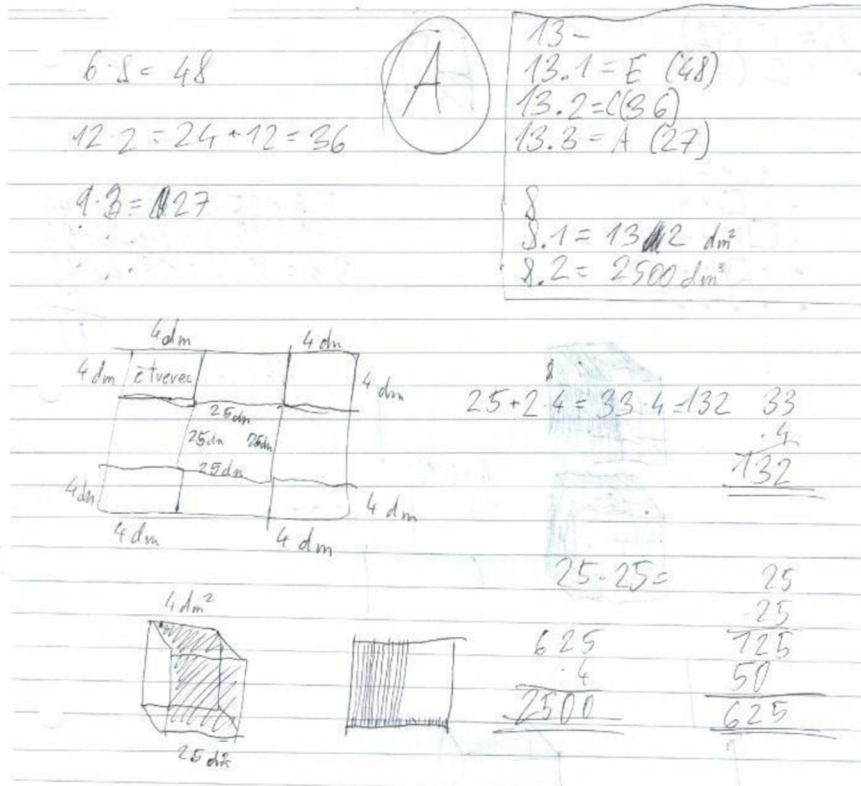 6·8 = 48
12·2 = 24 + 12 = 36
9·3 = 27
A
13-
13.1 = E (48)
13.2 = C (36)
13.3 = A (27)
8
8.1 = 132 dm²
8.2 = 2500 dm³
4 dm 4 dm
4 dm čtverec 4 dm
25 dm
25 dm 25 dm
25 dm
4 dm 4 dm
4 dm 4 dm
8
25 + 2·4 = 33·4 = 132
33
·4
132
25·25 =
25
25
125
50
625
625
·4
2500
4 dm²
25 dm²